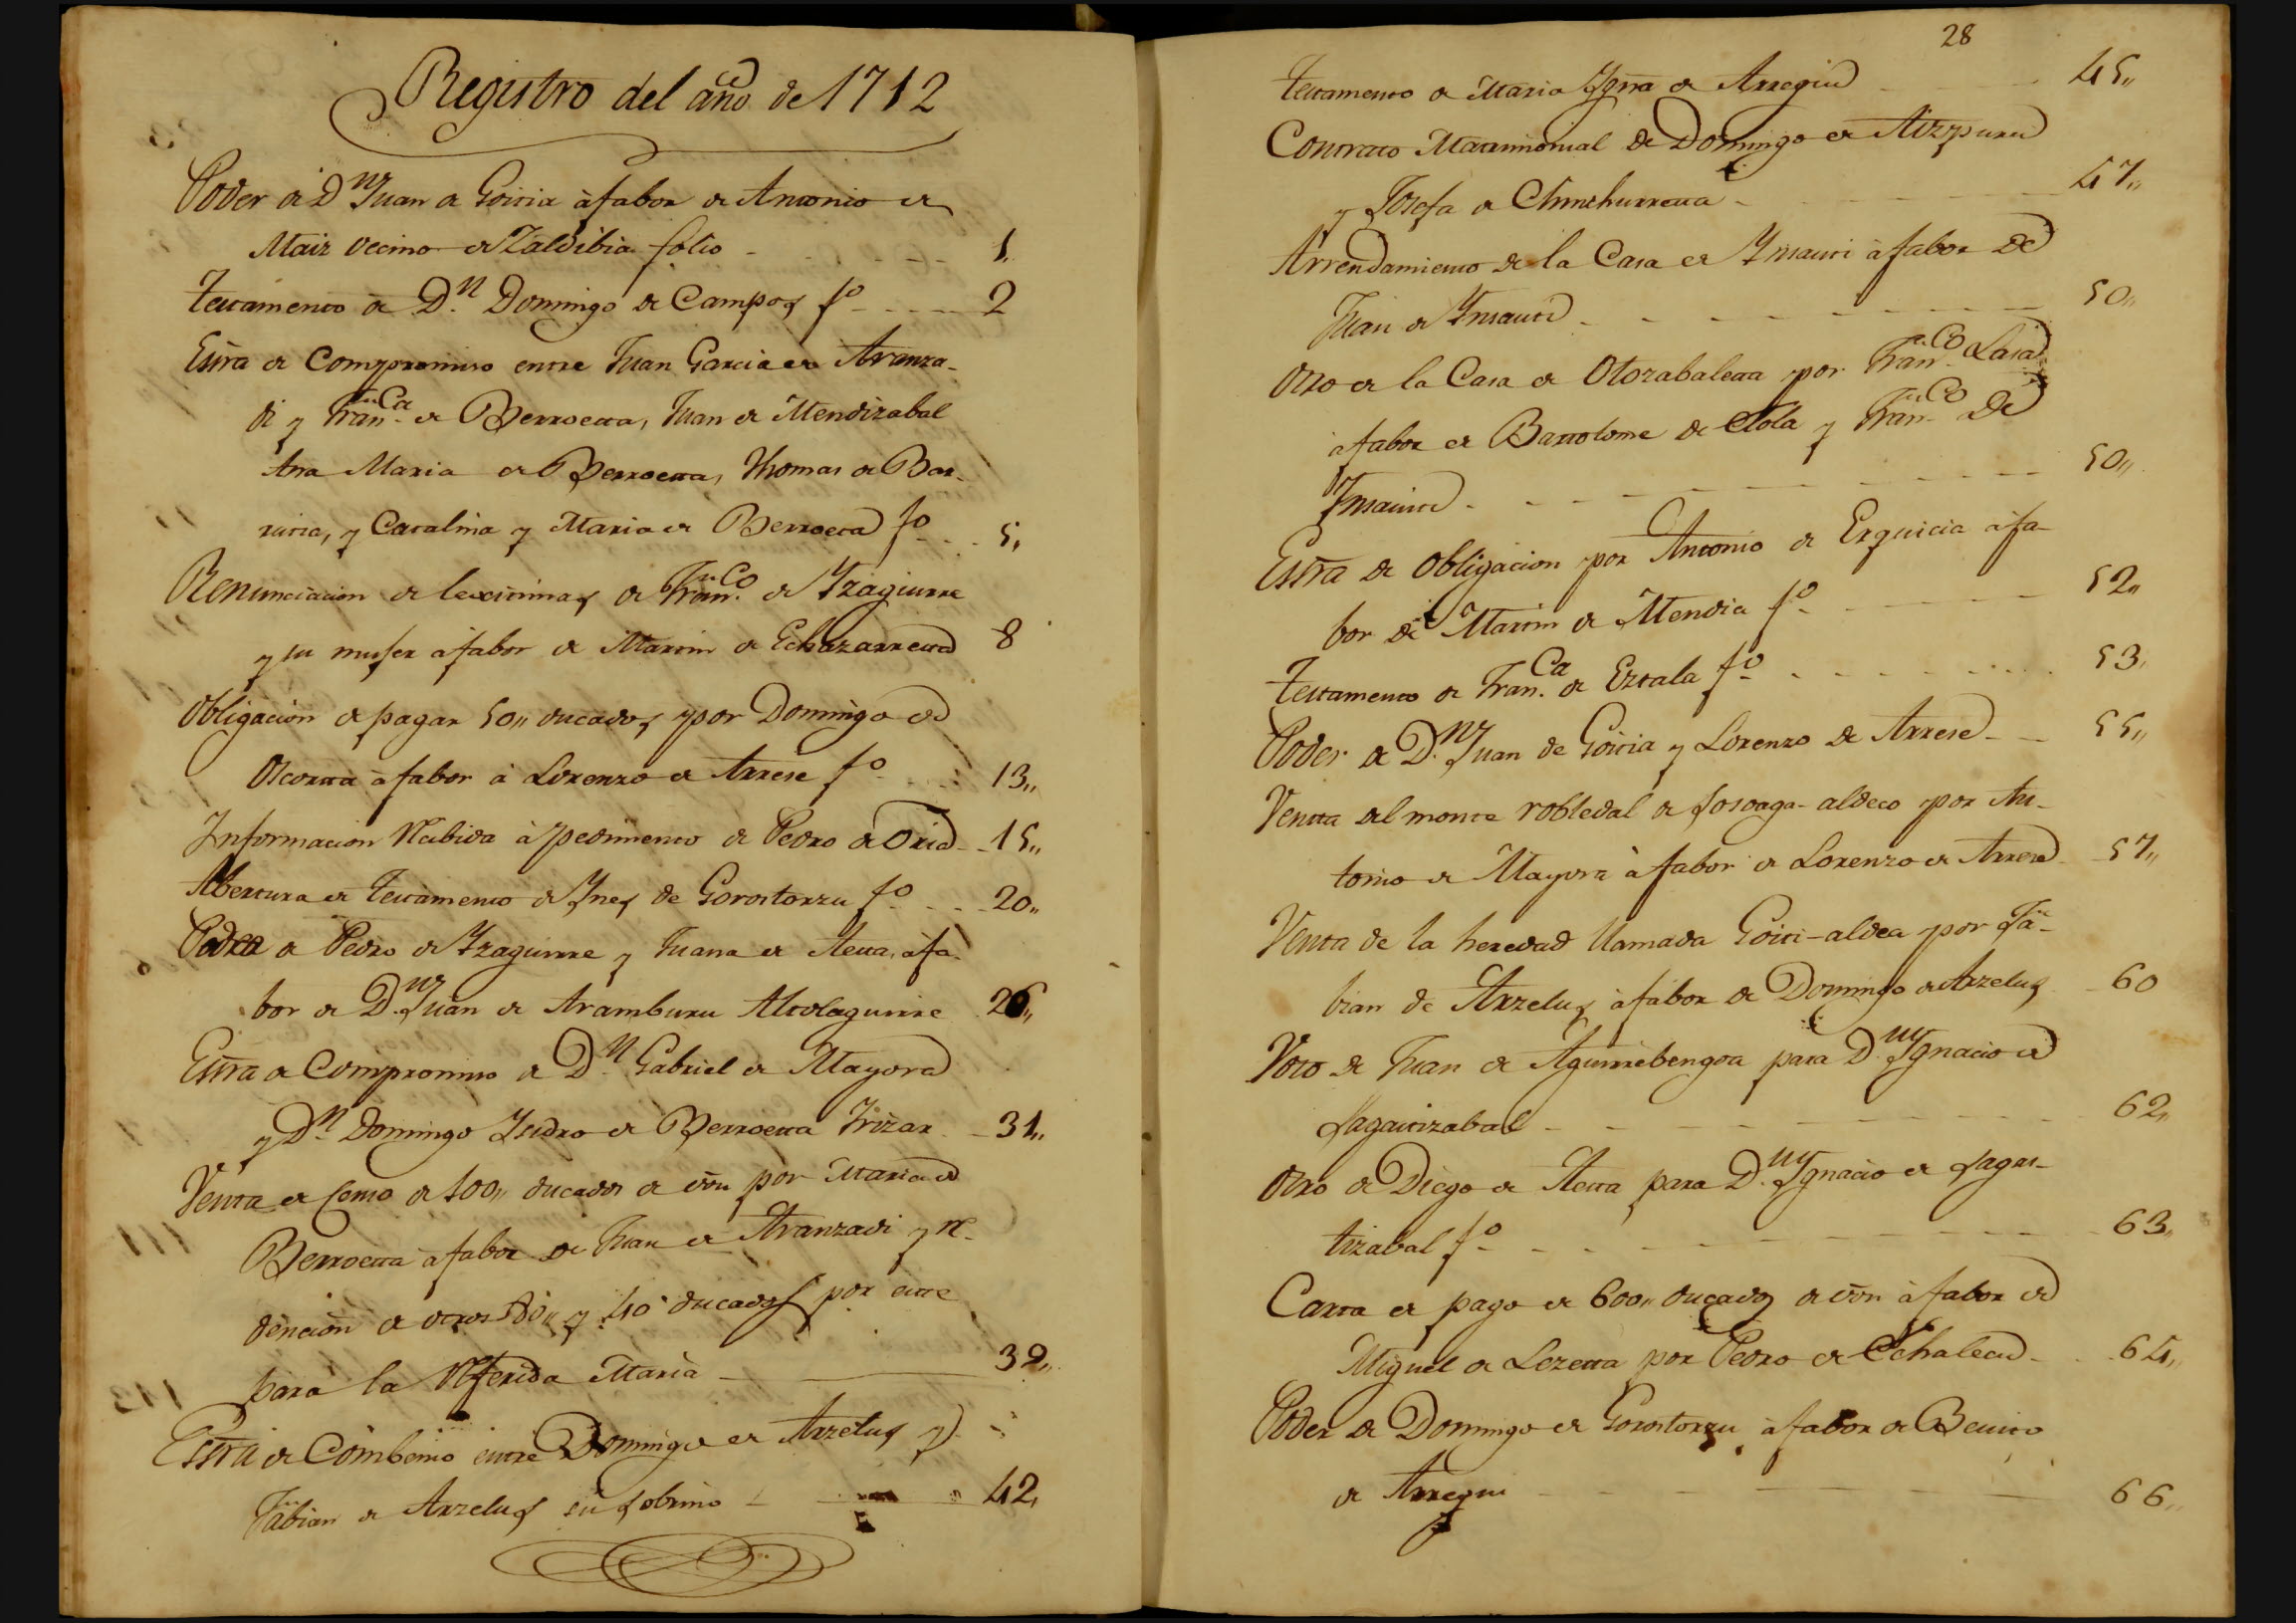 Registro del año de 1712
Poder de Dn Juan de Goitia à fabor de Antonio de
Maiz vecino de Zaldibia folio 1,,
Testamento de D.n Domingo de Campos fo 2
Essra de Compromiso entre Juan Garcia de Aranza-
di y Fran.ca de Berroetta, Juan de Mendizabal
Ana Maria de Berroetta, Thomas de Bar-
rutia, y Catalina y Maria de Berroeta fo 5,
Renunciacion de lexitimas de Fran.co de Yzaguirre
y su muger à fabor de Martin de Echazarreta 8
Obligacion de pagar 50,, ducados por Domingo de
Otcortta à fabor à Lorenzo de Arrese fo 13,,
Informacion Recibida à pedimento de Pedro de Oria 15,,
Abertura de testamento de Ynes de Gorostorzu fo 20,,
Poder de Pedro de Yzaguirre y Juana de Aetta, à fa-
bor de D.n Juan de Aramburu Alcolaguirre 26,,
Essra de Compromiso de D.n Gabriel de Mayora
y Dn Domingo Ysidro de Berroetta Irizar 31,,
Ventta de Censo de 100,, ducados de von por Maria de
Berroetta à fabor de Juan de Aranzadi y re-
dencion de otros 80,, y 40 ducados por este
para la Referida Maria 39,,
Essra de Combenio entre Domingo de Arzelus y
Fabian de Arzelus su sobrino 42,
28
Testamento de Maria Ygna de Arregui 45,,
Contrato Matrimonial de Domingo de Aizpuru
y Josefa de Chinchurretta 47,,
Arrendamiento de la Casa de Ynsausti à fabor de
Juan de Ynsausti 50,,
Otro de la Casa de Otozabaletta por Fran.co Lasa
à fabor de Bartolome de Olola y Fran.co de
Ynsausti 50,,
Essra de Obligacion por Antonio de Erquicia à fa-
bor de Martin de Mendia fo 52,,
Testamento de Fran.ca de Eztala fo 53,
Poder de D.n Juan de Goitia y Lorenzo de Arrese 55,,
Ventta del monte robledal de Josoaga-aldeco por An-
tonio de Mayora à fabor de Lorenzo de Arrese 57,,
Ventta de la heredad llamada Goiti-aldea por Fa-
bian de Arzelus à fabor de Domingo de Arzelus 60
Voto de Juan de Aguirrebengoa para D.n Ygnacio de
Sagastizabal 62,,
Otro de Diego de Aetta para D.n Ygnacio de Sagas-
tizabal fo 63,,
Carta de pago de 600,, ducados de von à fabor de
Miguel de Lezetta por Pedro de Echalecu 64,,
Poder de Domingo de Gorostorzu à fabor de Benito
de Arregui 66,,